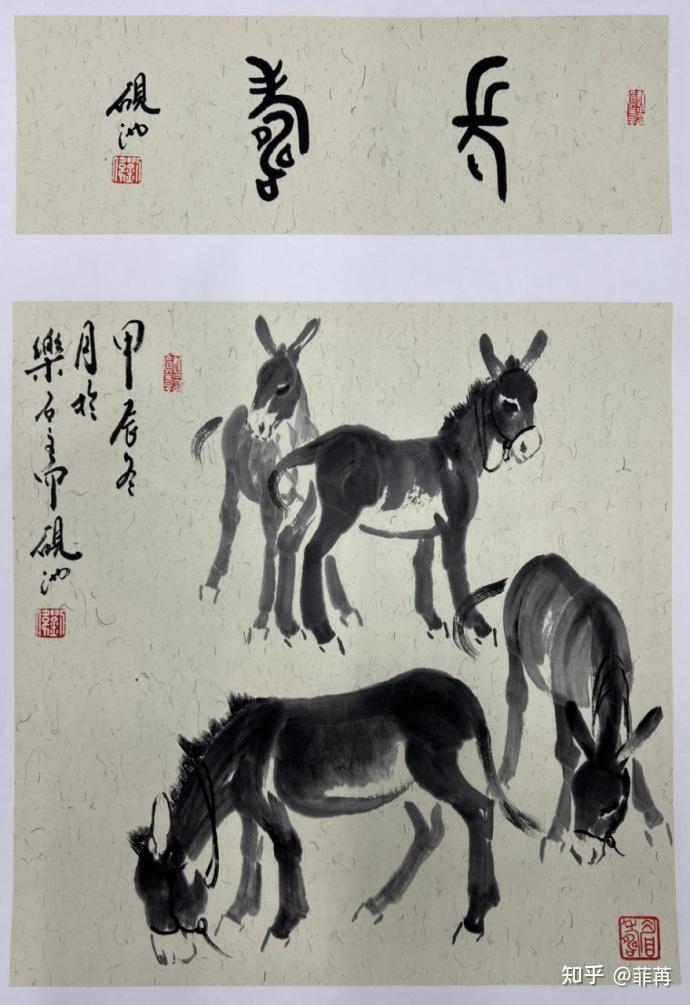 長壽
硯池
甲辰冬
月於
樂石 硯池
知乎 @菲苒